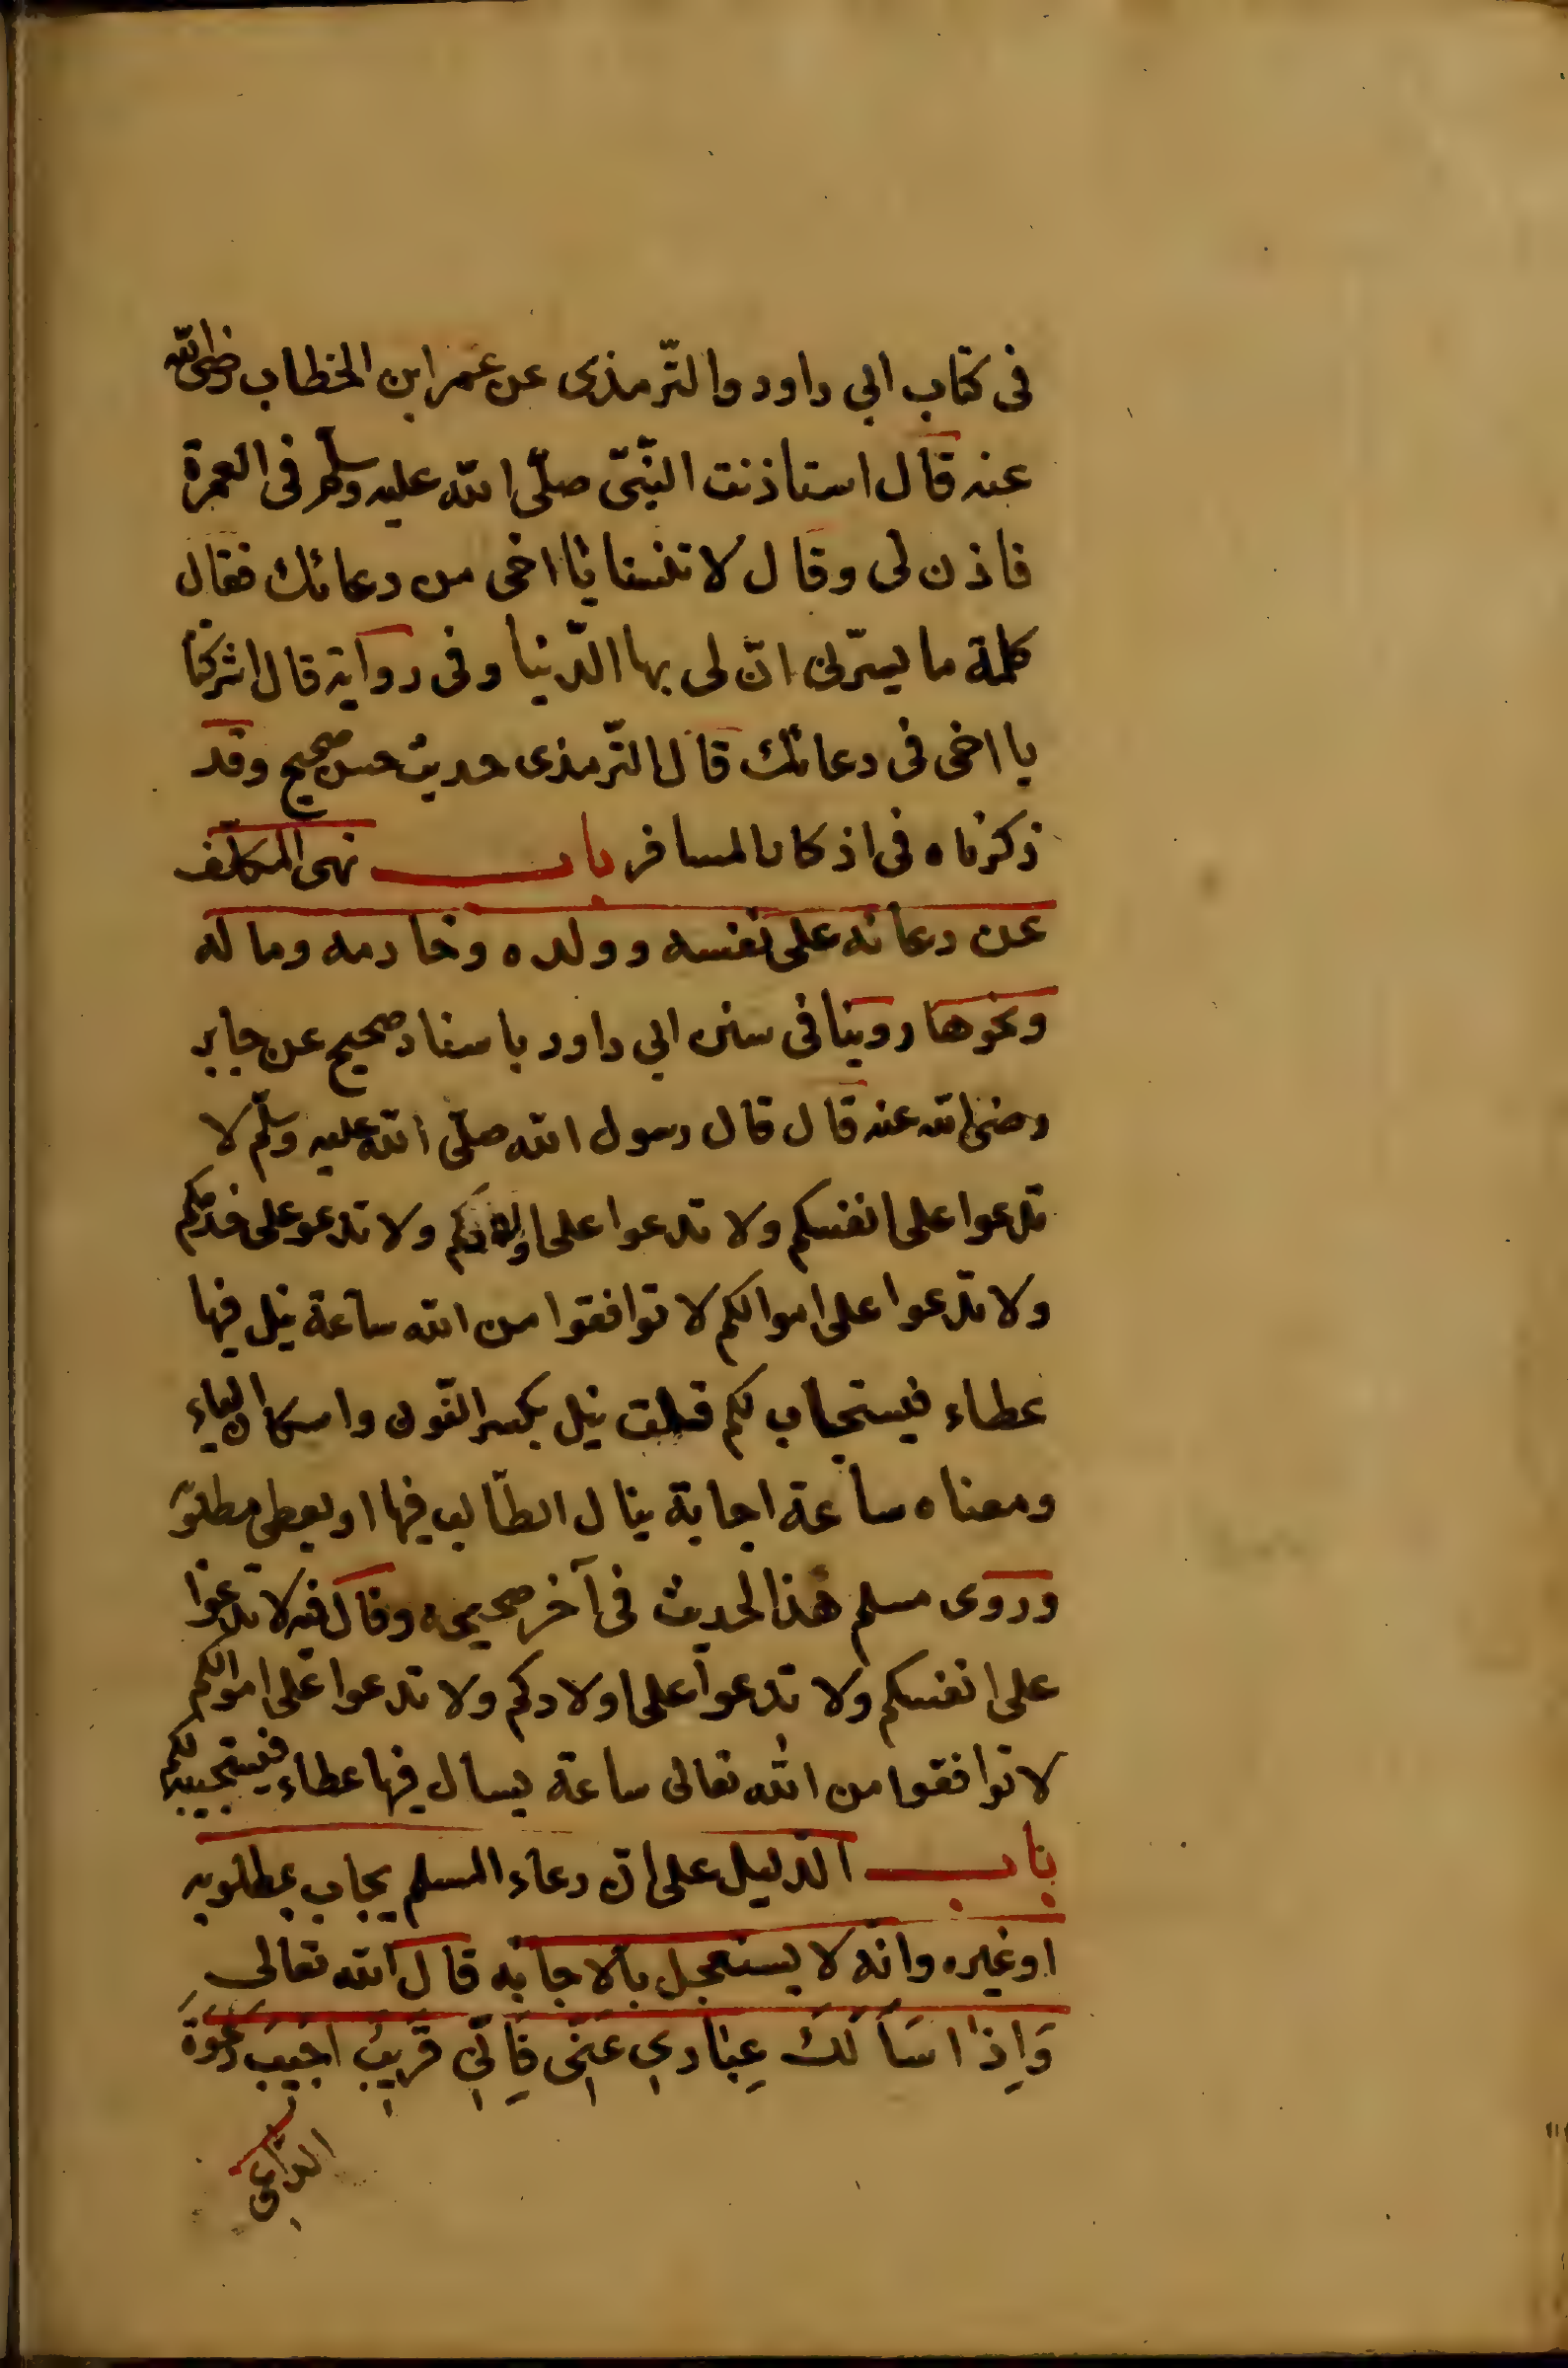 فى كتاب ابي داود والتّرمذى عن عمر ابن الخطاب رضى الله
عنه قال استاذنت النّبىّ صلّى الله عليه وسلم فى العمرة
فاذن لى وقال لا تنسنا يا اخى من دعائك فقال
كلمة ما يسرّنى انّ لى بها الدّنيا وفى رواية قال اشركنا
يا اخى فى دعائك قال التّرمذى حديث حسن صحيح وقد
ذكرناه فى اذكار المسافر باب نهى المكلّف
عن دعائه على نفسه وولده وخادمه وماله
ونحوها روينا فى سنن ابي داود باسناد صحيح عن جابر
رضى الله عنه قال قال رسول الله صلّى الله عليه وسلّم لا
تدعوا على انفسكم ولا تدعوا على اولادكم ولا تدعو على خدمكم
ولا تدعوا على اموالكم لا توافقوا من الله ساعة نيل فيها
عطاء فيستجاب لكم قلت نيل بكسر النّون واسكان الياء
ومعناه ساعة اجابة ينال الطّالب فيها اويعطى مطلوبه
وروى مسلم هذا الحديث فى آخر صحيحه وقال فيه لا تدعوا
على انفسكم ولا تدعوا على اولادكم ولا تدعوا على اموالكم
لا توافقوا من الله تعالى ساعة يسال فيها عطاء فيستجيب لكم
باب الدّليل على انّ دعاء المسلم يجاب بمطلوبه
اوغيره وانّه لا يستعجل بالاجابة قال الله تعالى
وَاِذَا سَاَلَكَ عِبَادِي عَنِّى فَاِنِّي قَرِيبٌ اُجِيبُ دَعْوَةَ
الدّاعى